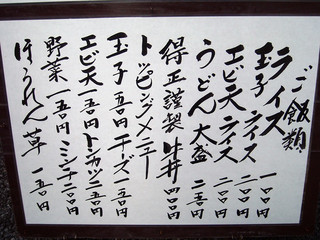 ご飯類
ライス 一〇〇円
玉子ライス 一五〇円
エビ天ライス 二〇〇円
うどん大盛 二五〇円
得正謹製牛丼 四〇〇円
トッピングメニュー
玉子 五〇円 チーズ 一五〇円
エビ天 一五〇円 トンカツ 二五〇円
野菜 一五〇円 ミンチ 二〇〇円
ほうれん草 一五〇円